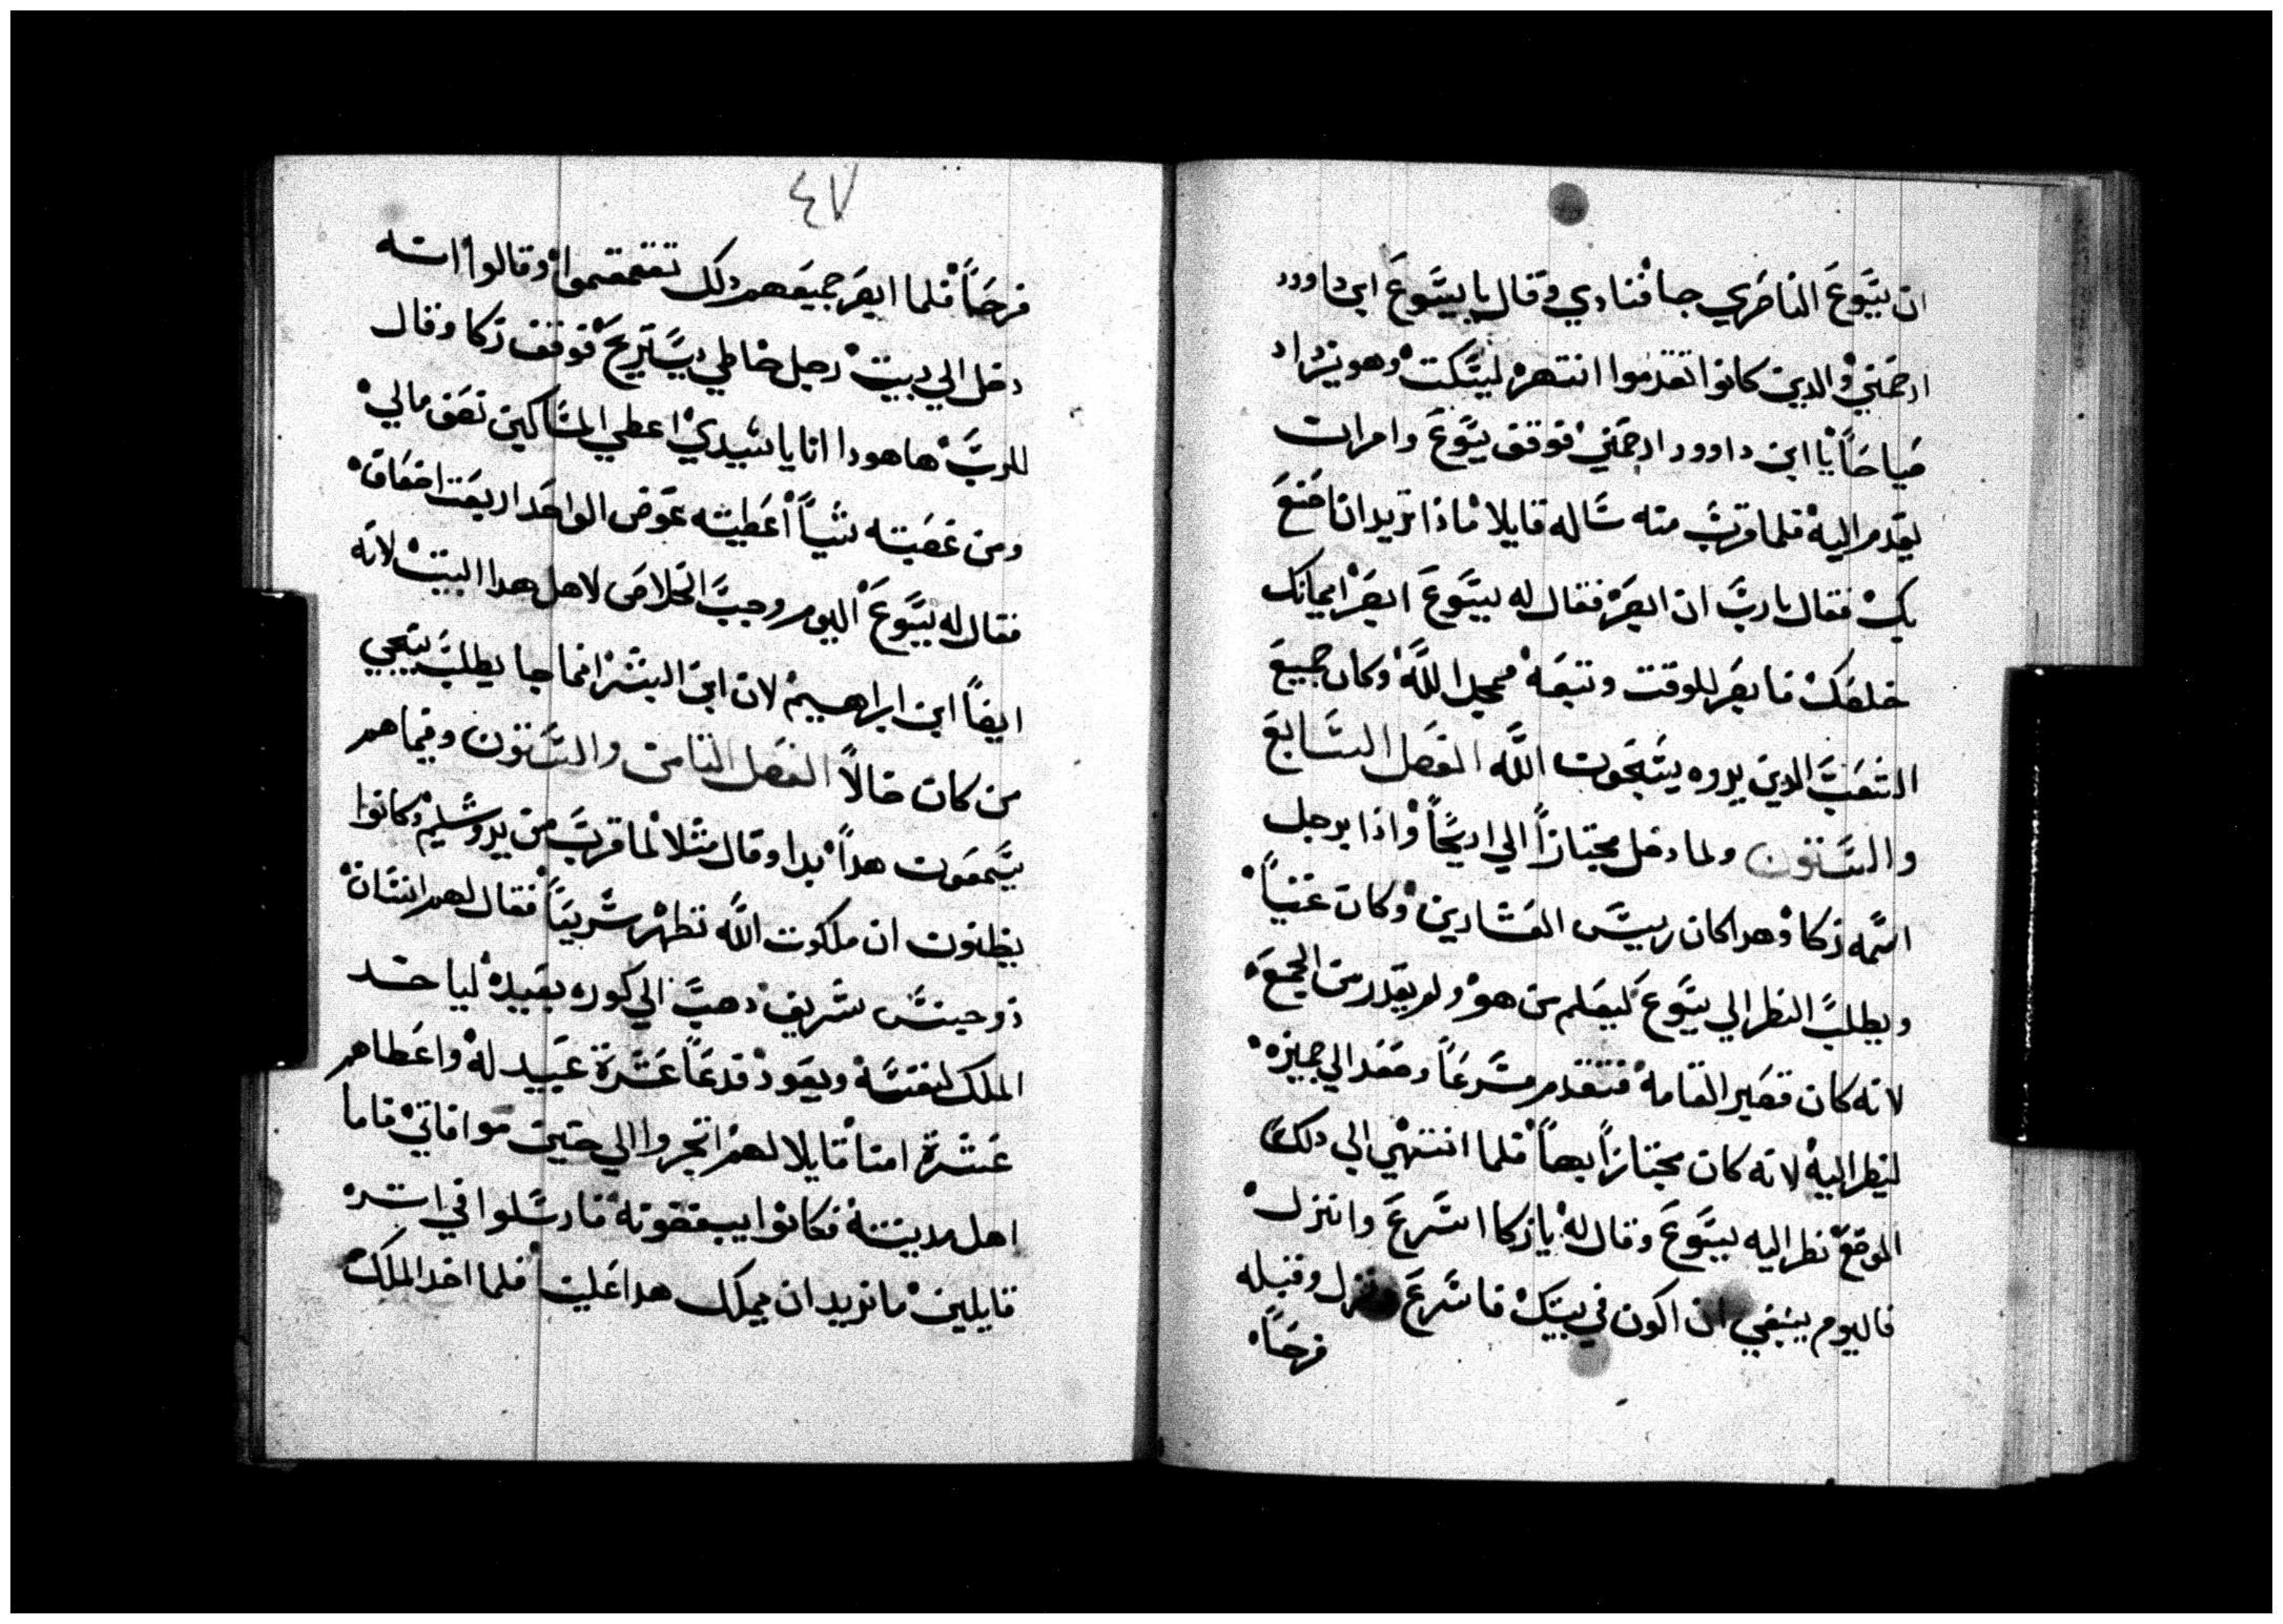 ان يسَّوعَ الناصَري جا فنادي وقال يا يسَّوعَ ابن داوود
ارحَمني والدين كانوا تقدموا انتهره ليسَّكت وهو يزداد
صَياحَاً يا ابن داوود ارحَمني فوقف يسَّوعَ وامر ان
يقدم اليه فلما قربَّ منه سَاله قايلا ماذا تريد ان اصَنعَ
بك فقال يا ربَّ ان ابصَر فقال له يسَّوعَ ابصَر ايمانك
خلصَك فابصَر للوقت وتبعَه يمجد اللَّه وكان جميعَ
الشعَبَّ الدين يروه يسَّبحَون اللَّه الفصَل السَّابعَ
والسَّتون ولما دخل مجتازاً الي اريحَاً واذا برجل
اسَّمه زكا وهدا كان رييسَّ العَشارين وكان غنياً
ويطلبَّ النظر الي يسَّوعَ ليعَلم من هو ولم يقدر من الجمعَ
لانه كان قصَير القامه فتقدم مسَّرعَاً وصَعَد الي جميزه
لينظر اليه لانه كان مجتازاً بهاً فلما انتهي الي دلك
الموضعَ نظر اليه يسَّوعَ وقال له يا زكا اسَّرعَ وانزل
فاليوم ينبغي ان اكون في بيتك فاسَّرعَ ونزل وقبله
فرحَاً
٤٧
فرحَاً فلما ابصَر جميعَهم دلك تقمقموا وقالوا انه
دخل الي بيت رجل خاطي ليسَّتريحَ فوقف زكا وقال
للربَّ هاهودا انا يا سَّيدي اعطي المسَّاكين نصَف مالي
ومن غصَبته شياً اعَطيته عَوض الواحَد اربعَت اضعَاف
فقال له يسَّوعَ اليوم وجبَّ الخلاصَ لاهل هدا البيت لانه
ايضاً ابن ابراهيم لان ابن البشَر انما جا يطلبَّ ينجي
من كان ضالاً الفصَل التامن والسَّتون وفيما هم
يسَّمعَون هداً بدا وقال مثلا لما قربَّ من يروشَّليم وكانوا
يظنون ان ملكوت اللَّه تظهر سَّريعَاً فقال لهم انسَّان
ذو جنسَّ شريف دهبَّ الي كوره بعَيده لياخد
الملك لنفسَّه ويعَود فدعَاً عَشَرة عَبيد له واعَطاهم
عَشَرة امنا قايلا لهم اتجروا الي حَين موافاتي فاما
اهل مدينته فكانوا يبغضونه فارسَّلوا في اتره
قايلين ما نريد ان يملك هدا عَلينا فلما اخد الملك